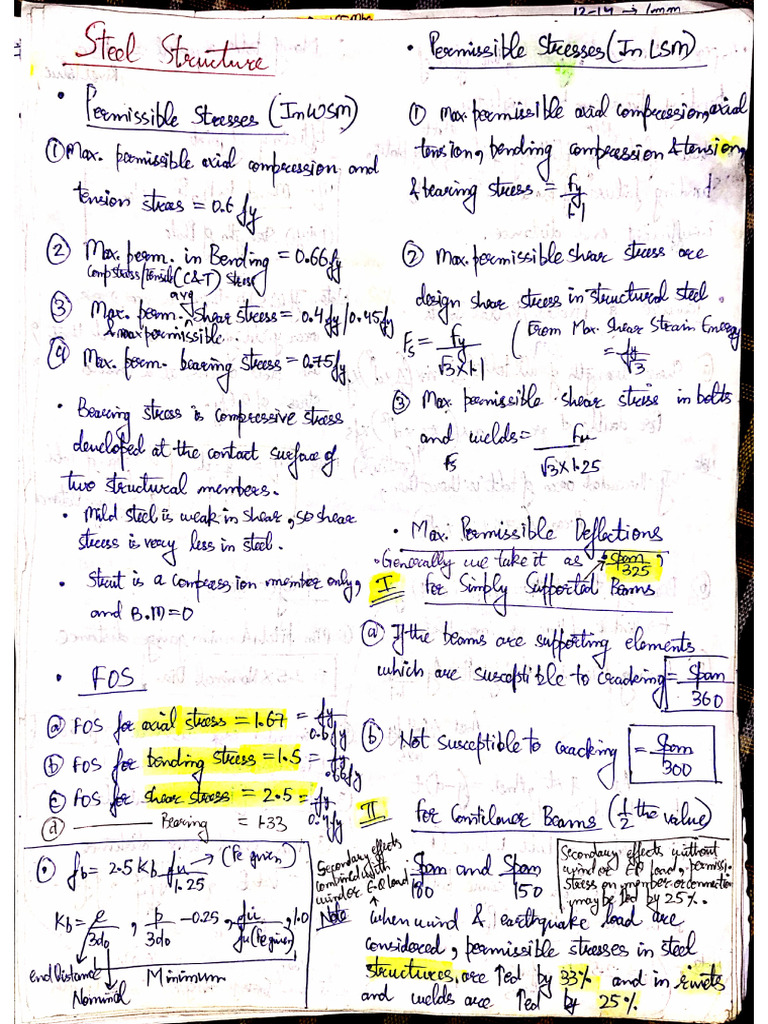 12-14 → 1mm
Steel Structure
• Permissible Stresses (In WSM)
① Max. permissible axial compression and
tension stress = 0.6 fy
② Max. perm. in Bending = 0.66fy
Comp stress/tensile (C&T) stress
avg
③ Max. perm. shear stress = 0.4fy/0.45fy
& max permissible
④ Max. perm. bearing stress = 0.75fy
• Bearing stress is compressive stress
developed at the contact surface of
two structural members.
• Mild steel is weak in shear, so shear
stress is very less in steel.
• Strut is a compression member only,
and B.M = 0
• FOS
ⓐ FOS for axial stress = 1.67 = fy/0.6fy
ⓑ FOS for bending stress = 1.5 = fy/.66fy
ⓒ FOS for shear stress = 2.5 = fy/0.4fy
ⓓ ——— Bearing = 1.33
fb = 2.5 Kb fu/1.25 → (Pe given)
Kb = e/3do, p/3do - 0.25, fu/fu(Pe given), 1.0
end Distance Minimum
Nominal
• Permissible Stresses (In LSM)
① Max. permissible axial compression, axial
tension, bending compression & tension,
& bearing stress = fy/1.1
② Max. permissible shear stress are
design shear stress in structural steel.
Fs = fy/√3×1.1 (From Max. Shear Strain Energy
= fy/√3
③ Max permissible shear stress in bolts
and welds = fu/√3×1.25
Fs
• Max. Permissible Deflections
• Generally we take it as span/325,
I for Simply Supported Beams
ⓐ If the beams are supporting elements
which are susceptible to cracking = Span/360
ⓑ Not susceptible to cracking = Span/300
II for Cantilever Beams (1/2 the value)
Span/180 and Span/150
Secondary effects
combined with
wind or E.Q load
Secondary effects without
wind or EQ load, permissi.
stress on member or connection
may be ↑ed by 25%.
Note when wind & earthquake load are
considered, permissible stresses in steel
structures, are ↑ed by 33% and in rivets
and welds are ↑ed by 25%.